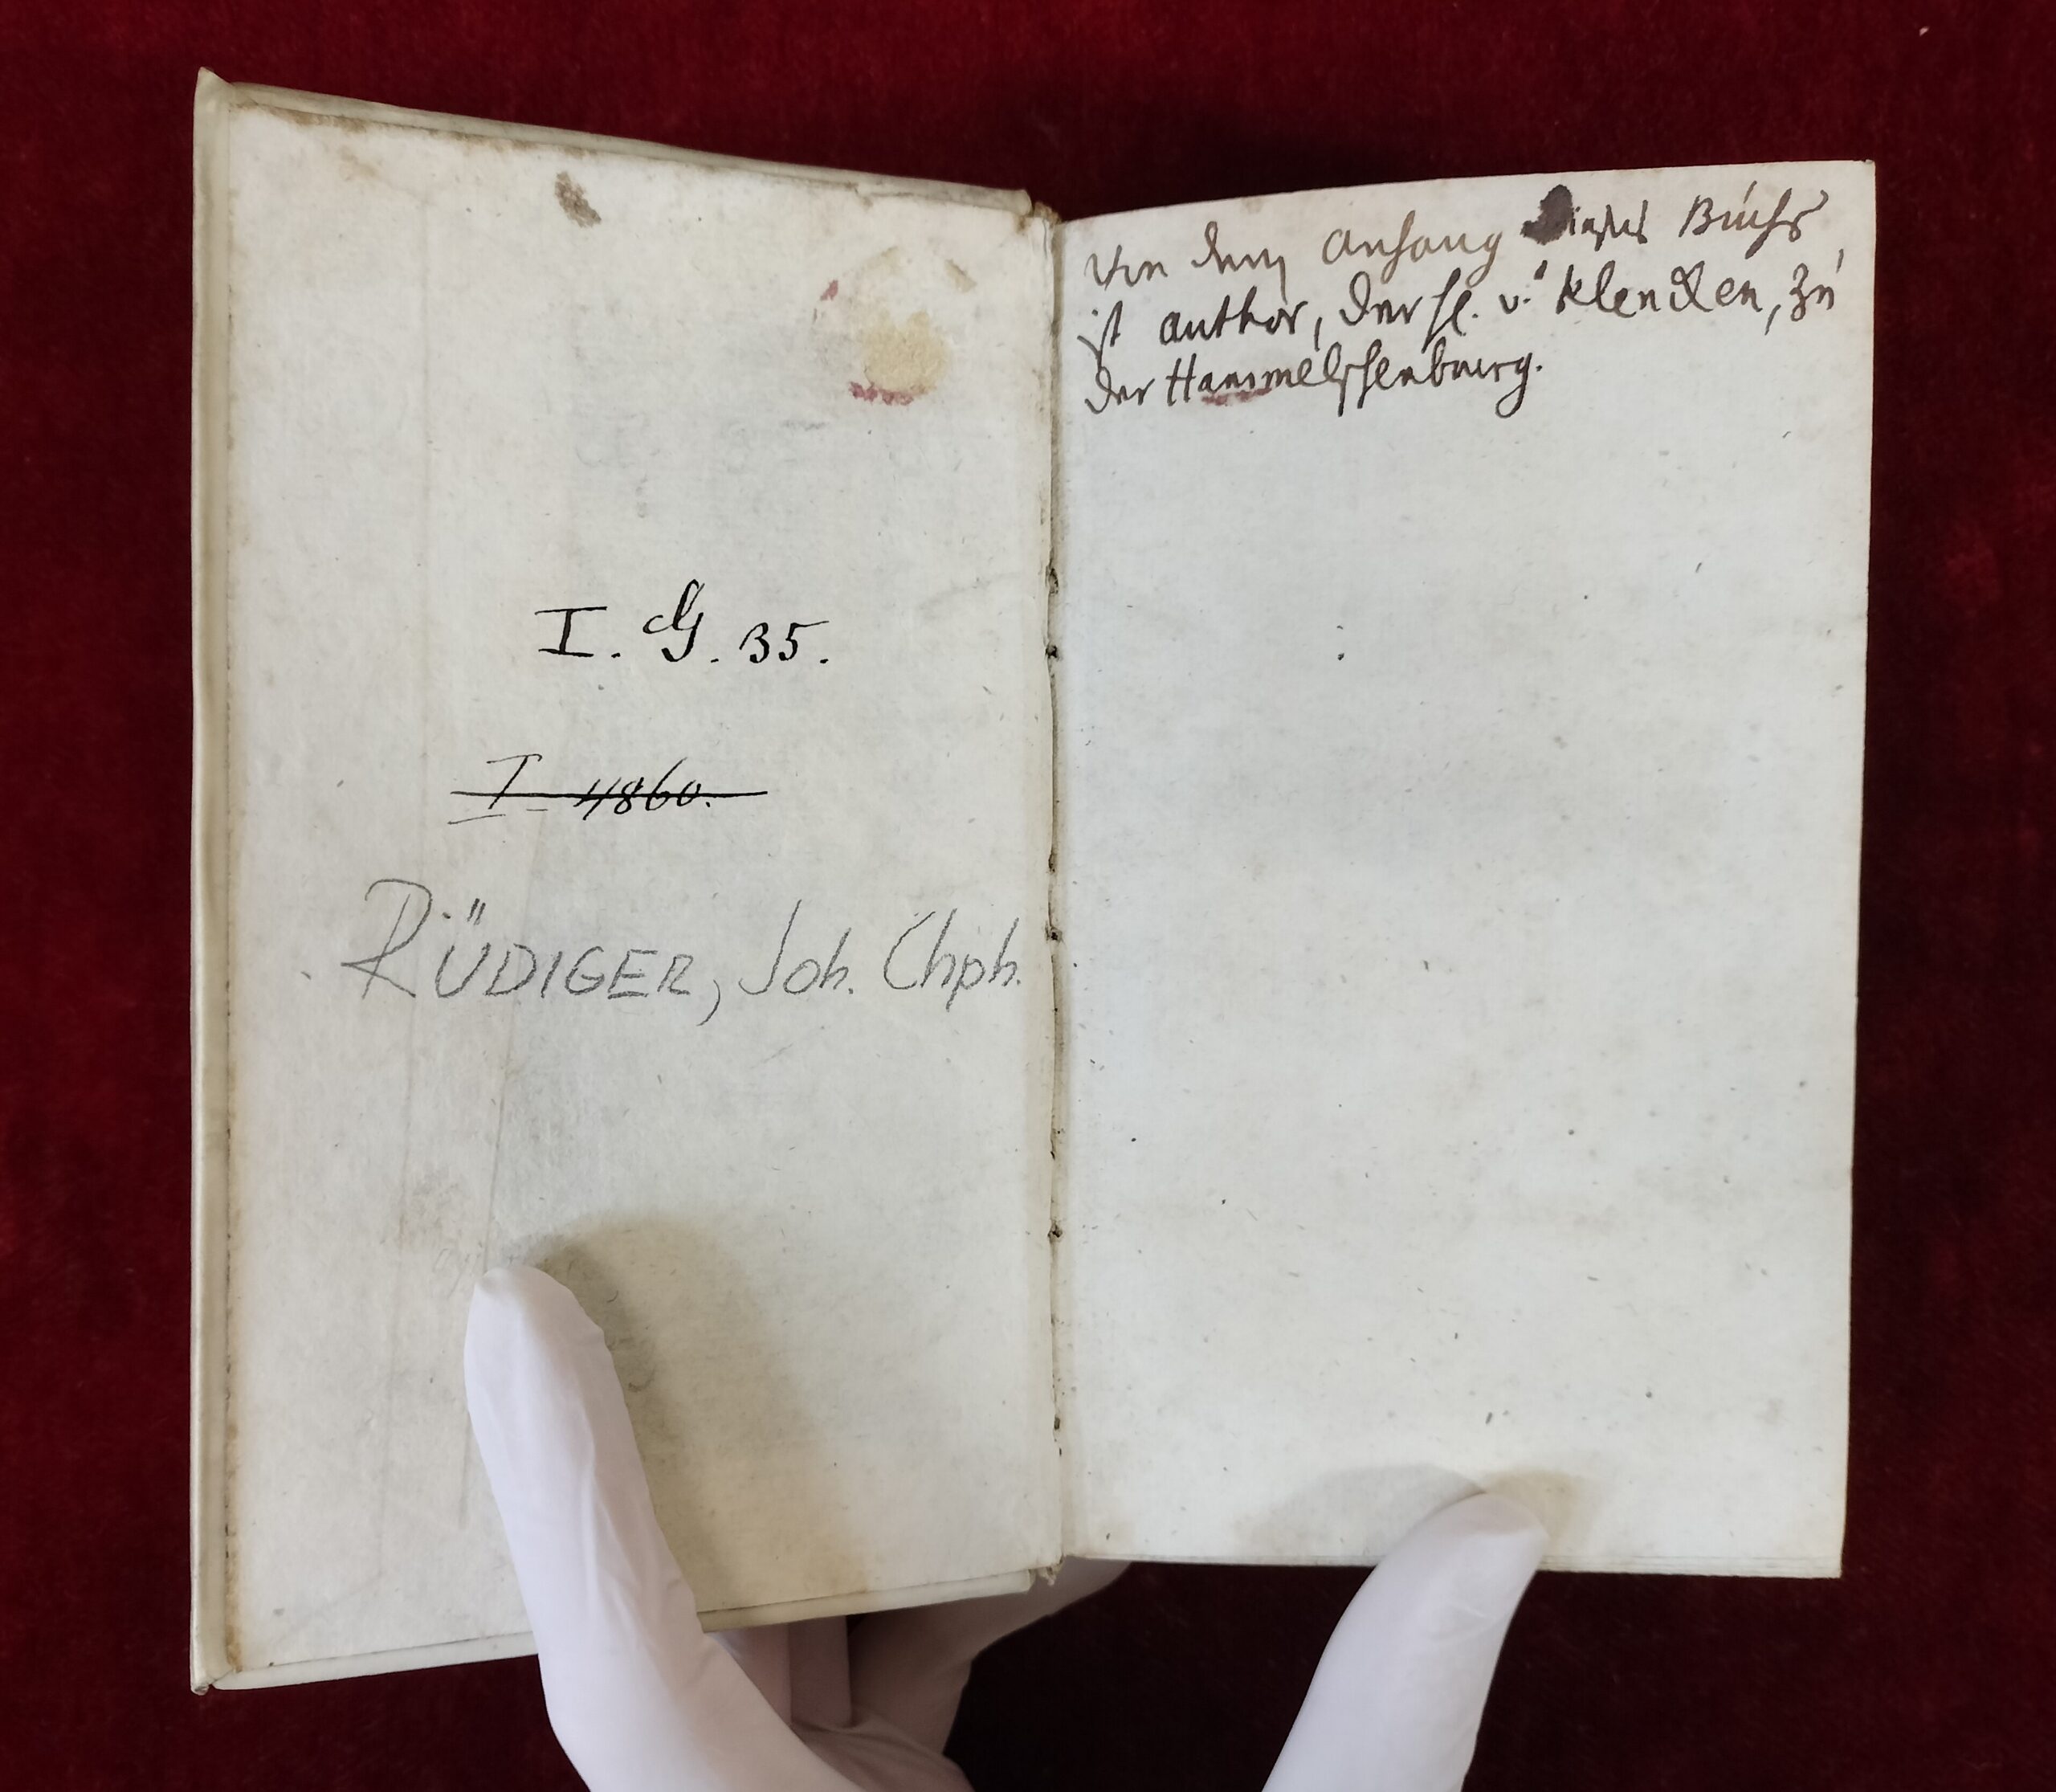 I. G. 35.
I 4860.
RÜDIGER, Joh. Chph.
Von dem Anhang dieses Buchs
ist author, der sl. v. Klencken, zu
der Hammelschenburg.